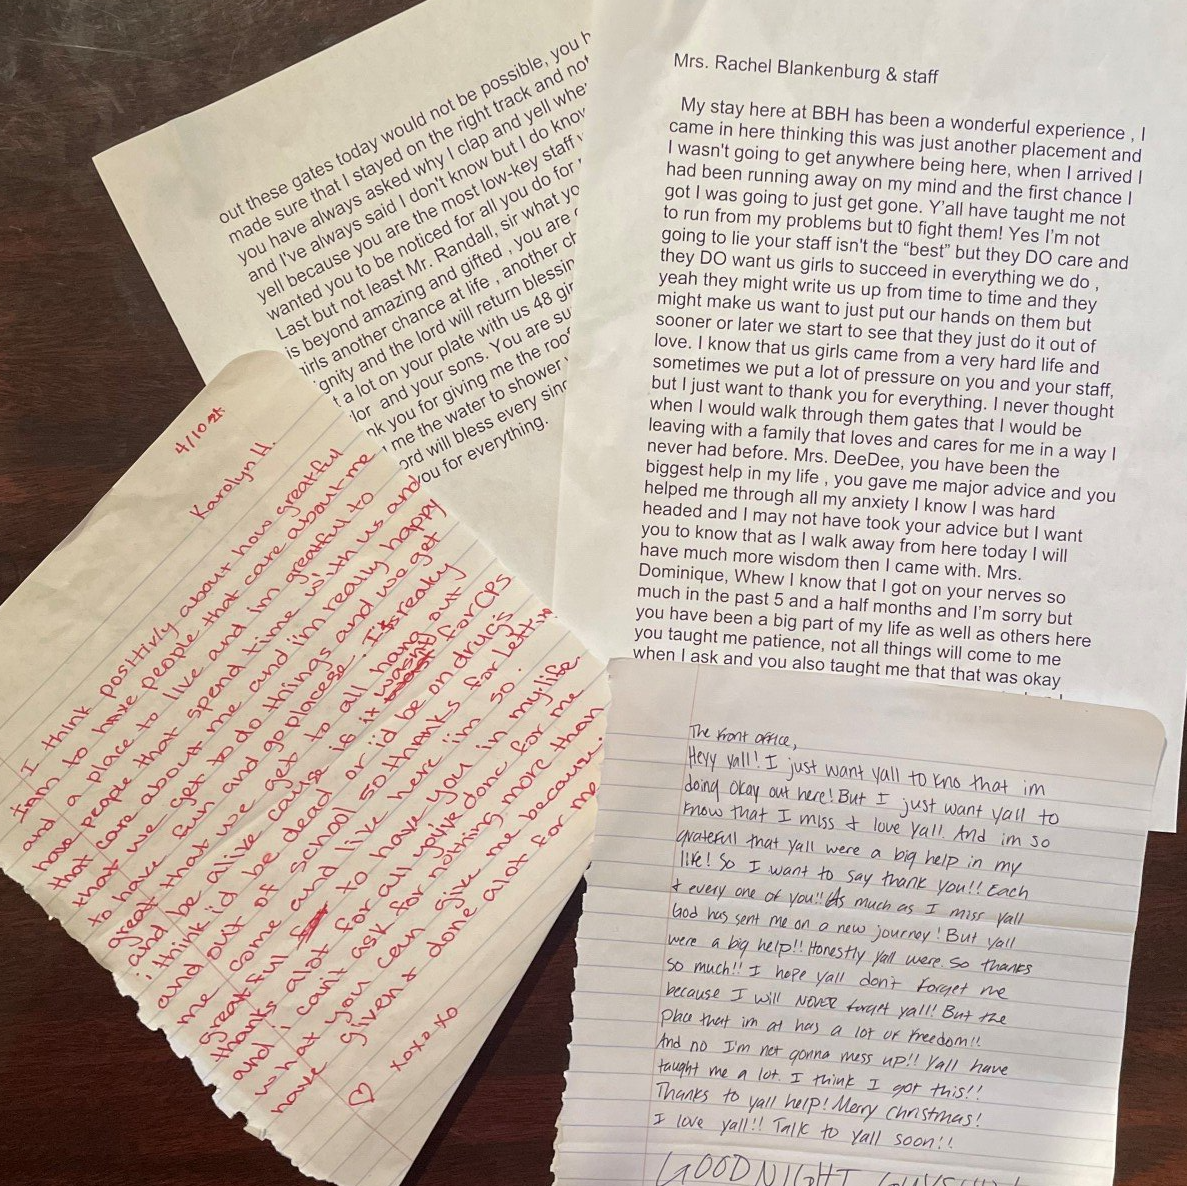 out these gates today would not be possible, you h
made sure that I stayed on the right track and not
you have always asked why I clap and yell whe
and I've always said I don't know but I do know
yell because you are the most low-key staff
wanted you to be noticed for all you do for
Last but not least Mr. Randall, sir what yo
is beyond amazing and gifted , you are
girls another chance at life , another ch
gnity and the lord will return blessin
t a lot on your plate with us 48 gir
lor and your sons. You are su
nk you for giving me the roof
me the water to shower
ord will bless every sinc
you for everything.
Mrs. Rachel Blankenburg & staff
My stay here at BBH has been a wonderful experience , I
came in here thinking this was just another placement and
I wasn't going to get anywhere being here, when I arrived I
had been running away on my mind and the first chance I
got I was going to just get gone. Y'all have taught me not
to run from my problems but t0 fight them! Yes I'm not
going to lie your staff isn't the "best" but they DO care and
they DO want us girls to succeed in everything we do ,
yeah they might write us up from time to time and they
might make us want to just put our hands on them but
sooner or later we start to see that they just do it out of
love. I know that us girls came from a very hard life and
sometimes we put a lot of pressure on you and your staff,
but I just want to thank you for everything. I never thought
when I would walk through them gates that I would be
leaving with a family that loves and cares for me in a way I
never had before. Mrs. DeeDee, you have been the
biggest help in my life , you gave me major advice and you
helped me through all my anxiety I know I was hard
headed and I may not have took your advice but I want
you to know that as I walk away from here today I will
have much more wisdom then I came with. Mrs.
Dominique, Whew I know that I got on your nerves so
much in the past 5 and a half months and I'm sorry but
you have been a big part of my life as well as others here
you taught me patience, not all things will come to me
when I ask and you also taught me that that was okay
4/10
Karolyn H.
I think positivly about how greatful
Iam to have people that care about me
and a place to live and im greatful to
have people that spend time with us and
that care about me and i'm really happy
that we get to do things and we get
to have fun and go places I is really
great that we get to all hang out
and be alive cause is it wasnt for CPS
i think i'd be dead or i'd be on drug's
and out of school so thanks for lettin
me come and live here im so
greatful to have you in my life
thanks alot for all you've done for me
and i can't ask for nothing more than
what you can give me because
have given & done alot for me
♡ xoxo xo
The Front Office,
Heyy yall! I just want yall to kno that im
doing okay out here! But I just want yall to
know that I miss & love yall! And im so
grateful that yall were a big help in my
life! So I want to say thank you!! Each
& every one of you!! As much as I miss yall
God has sent me on a new journey! But yall
were a big help!! Honestly yall were. So thanks
so much!! I hope yall don't forget me
because I will NEVER forget yall! But the
place that im at has a lot of freedom!!
And no I'm not gonna mess up!! Yall have
taught me a lot. I think I got this!!
Thanks to yall help! Merry Christmas!
I love yall!! Talk to yall soon!!
GOODNIGHT